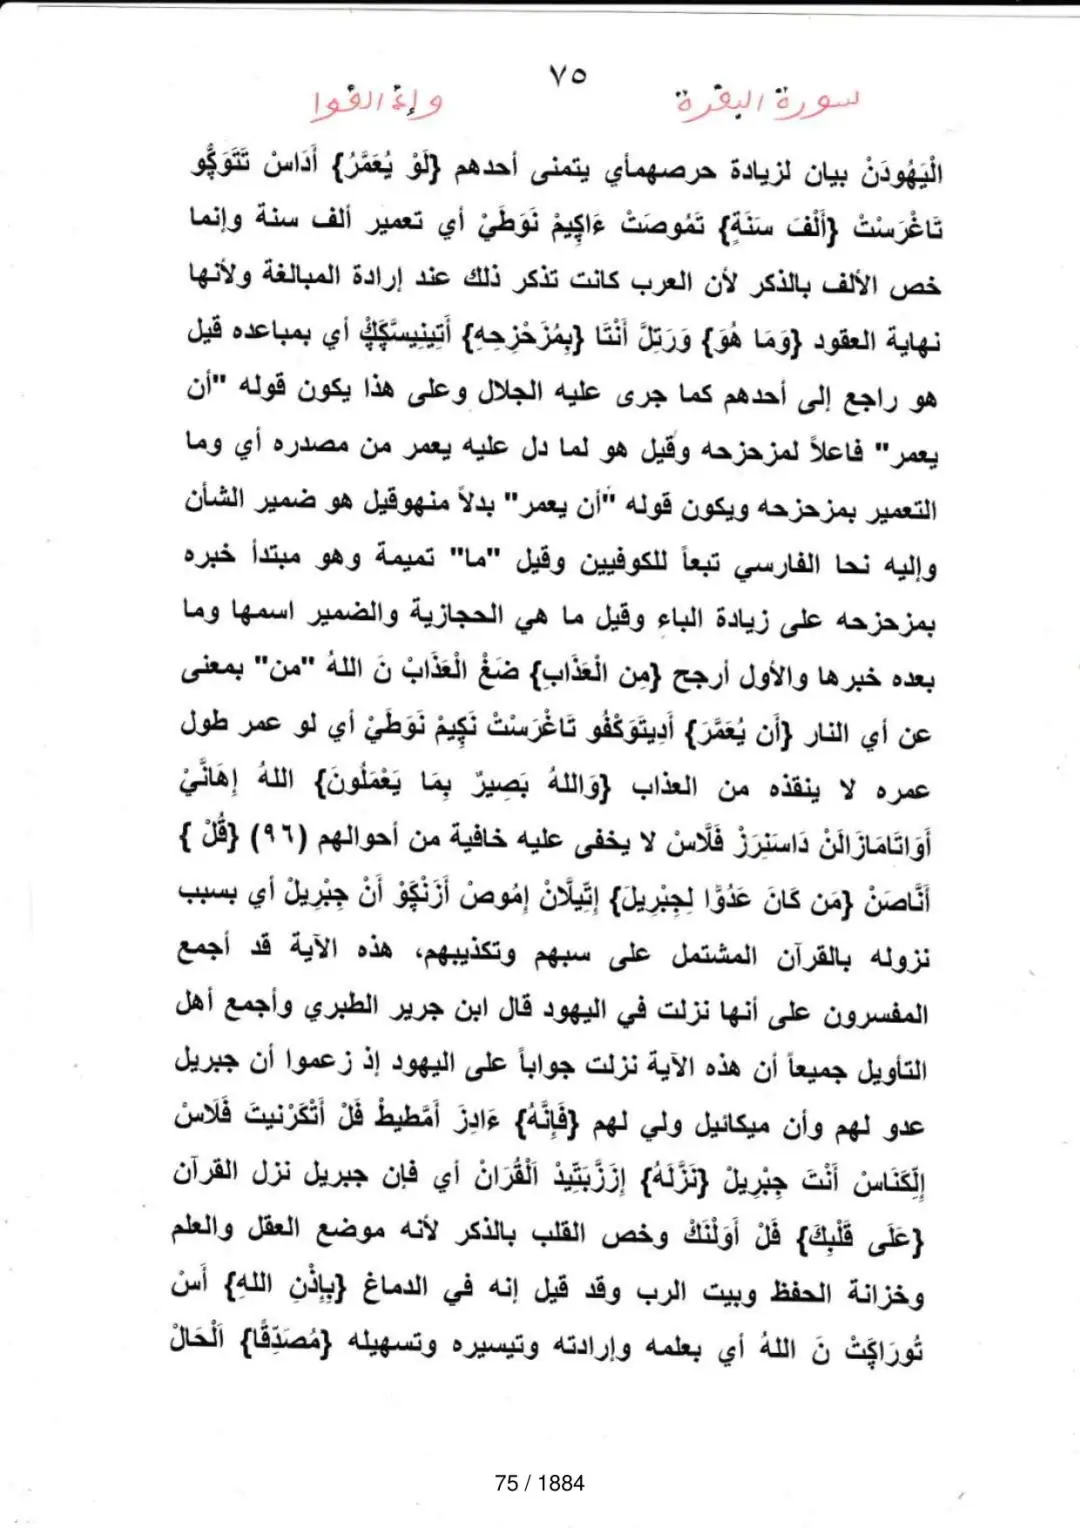 ٧٥
سورة البقرة وإذ القوا
الْيَهُودَنْ بيان لزيادة حرصهمأي يتمنى أحدهم {لَوْ يُعَمَّرُ} أَدَاسْ تَتَوَكِّو
تَاغْرَسْتْ {أَلْفَ سَنَةٍ} تَمُوصَتْ ءَاكِيمْ نَوَطَيْ أي تعمير ألف سنة وإنما
خص الألف بالذكر لأن العرب كانت تذكر ذلك عند إرادة المبالغة ولأنها
نهاية العقود {وَمَا هُوَ} وَرَتِلَّ أَنْتَا {بِمُزَحْزِحِهِ} أَتِينِيسَّكَكْ أي بمباعده قيل
هو راجع إلى أحدهم كما جرى عليه الجلال وعلى هذا يكون قوله "أن
يعمر" فاعلاً لمزحزحه وقيل هو لما دل عليه يعمر من مصدره أي وما
التعمير بمزحزحه ويكون قوله "أن يعمر" بدلاً منهوقيل هو ضمير الشأن
وإليه نحا الفارسي تبعاً للكوفيين وقيل "ما" تميمة وهو مبتدأ خبره
بمزحزحه على زيادة الباء وقيل ما هي الحجازية والضمير اسمها وما
بعده خبرها والأول أرجح {مِن الْعَذَابِ} ضَغْ الْعَذَابْ نَ اللهُ "من" بمعنى
عن أي النار {أَن يُعَمَّرَ} أَدِيتَوَكْفُو تَاغْرَسْتْ نَكِيمْ نَوَطَيْ أي لو عمر طول
عمره لا ينقذه من العذاب {وَاللهُ بَصِيرٌ بِمَا يَعْمَلُونَ} اللهُ إِهَانَّيْ
أَوَاتَامَازَالَنْ دَاسَنِرَزْ فَلَّاسْ لا يخفى عليه خافية من أحوالهم (٩٦) {قُلْ }
أَنَّاصَنْ {مَن كَانَ عَدُوًّا لِجِبْرِيلَ} إِتِّيلَانْ إِمُوصْ أَزَنْكَوْ أَنْ جِبْرِيلْ أي بسبب
نزوله بالقرآن المشتمل على سبهم وتكذيبهم، هذه الآية قد أجمع
المفسرون على أنها نزلت في اليهود قال ابن جرير الطبري وأجمع أهل
التأويل جميعاً أن هذه الآية نزلت جواباً على اليهود إذ زعموا أن جبريل
عدو لهم وأن ميكائيل ولي لهم {فَإِنَّهُ} ءَادِزَ أَمَّطيطْ فَلْ أَتْكَرْنيتَ فَلَاسْ
إِلَّكَنَاسْ أَنْتَ جِبْرِيلْ {نَزَّلَهُ} إِزَزَّبَتِيدْ اَلْقُرَانْ أي فإن جبريل نزل القرآن
{عَلَى قَلْبِكَ} فَلْ أَوَلْنَكْ وخص القلب بالذكر لأنه موضع العقل والعلم
وخزانة الحفظ وبيت الرب وقد قيل إنه في الدماغ {بِإِذْنِ اللهِ} أَسْ
تُورَاكَِتْ نَ اللهُ أي بعلمه وإرادته وتيسيره وتسهيله {مُصَدِّقًا} اَلْحَالْ
75 / 1884